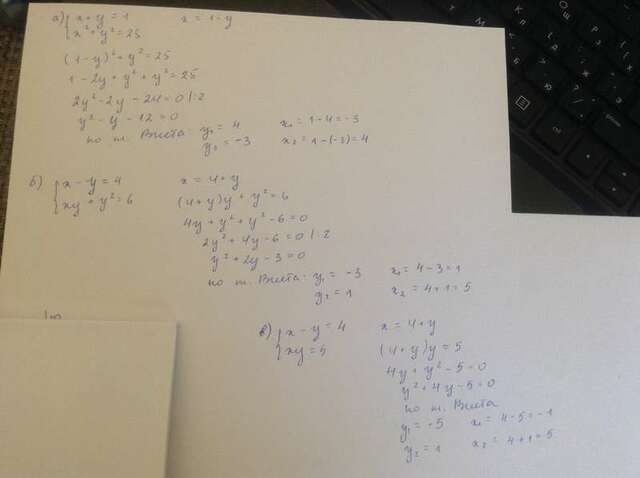 а) { x + y = 1        x = 1 - y
x² + y² = 25
(1 - y)² + y² = 25
1 - 2y + y² + y² = 25
2y² - 2y - 24 = 0 |:2
y² - y - 12 = 0
по т. Виета: y₁ = 4        x₁ = 1 - 4 = -3
y₂ = -3        x₂ = 1 - (-3) = 4
б) { x - y = 4        x = 4 + y
xy + y² = 6        (4 + y)y + y² = 6
4y + y² + y² - 6 = 0
2y² + 4y - 6 = 0 |:2
y² + 2y - 3 = 0
по т. Виета: y₁ = -3        x₁ = 4 - 3 = 1
y₂ = 1        x₂ = 4 + 1 = 5
в) { x - y = 4        x = 4 + y
xy = 5        (4 + y)y = 5
4y + y² - 5 = 0
y² + 4y - 5 = 0
по т. Виета
y₁ = -5        x₁ = 4 - 5 = -1
y₂ = 1        x₂ = 4 + 1 = 5